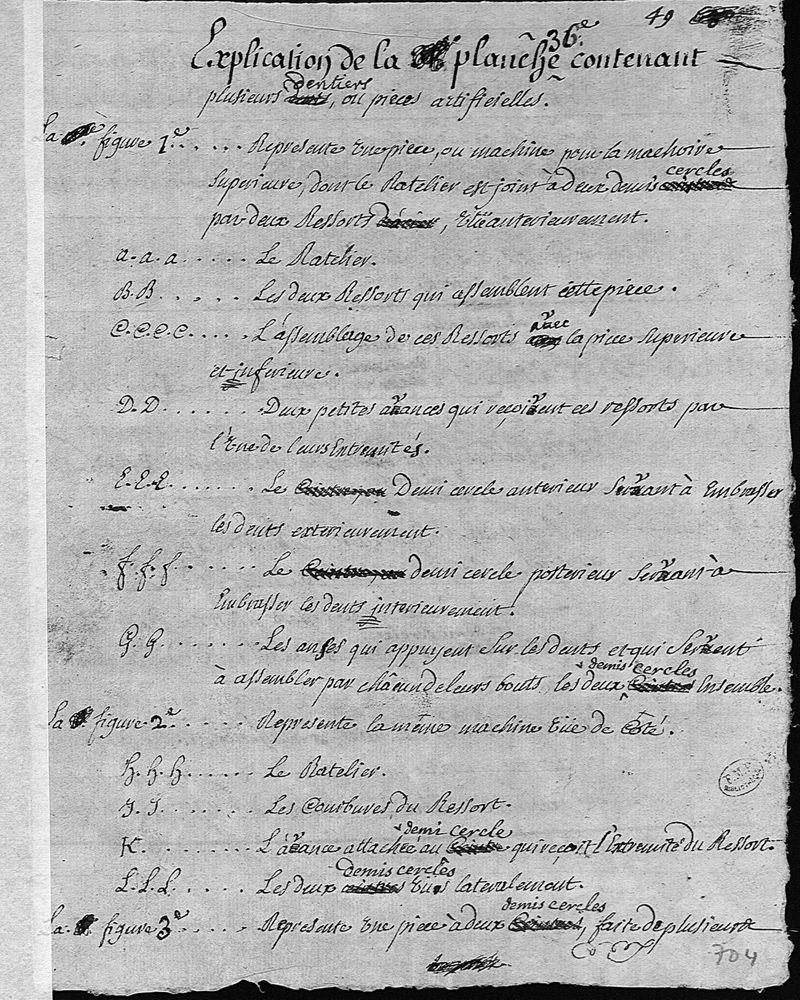 49
Explication de la planche 36e. contenant
plusieurs Dentiers, ou pieces artificielles.
La figure 1e. . . . . . Represente Une piece, ou machine pour la machoire
Superieure, dont le Ratelier est joint à deux demis cercles
par deux Ressorts, Vüe anterieurement.
a. a. a . . . . . Le Ratelier.
B. B. . . . . Les deux Ressorts qui assemblent cette piece.
C. C. C. C. . . . . L'assemblage de ces Ressorts avec la piece Superieure
et inferieure.
D. D. . . . . . . Deux petites avances qui reçoivent ces ressorts par
l'Une de leurs Extremités.
E. E. E. . . . . . Le Demi cercle anterieur Servant à Embrasser
les dents exterieurement.
f. f. f. . . . . . Le demi cercle posterieur Servant à
Embrasser les dents interieurement.
G. G. . . . . . . Les anses qui appuyent Sur les dents et qui Servent
à assembler par châcun de leurs bouts, les deux demis cercles Ensemble.
La figure 2e. . . . . Represente la même machine Vüe de Côté.
H. H. H. . . . . . Le Ratelier.
J. J. . . . . . . Les Courbures du Ressort.
K. . . . . . . L'avance attachée au demi cercle qui reçoit l'Extremité du Ressort.
L. L. L. . . . . . Les deux demis cercles Vus lateralement.
La figure 3e. . . . . Represente Une piece à deux demis cercles, faite de plusieurs
704